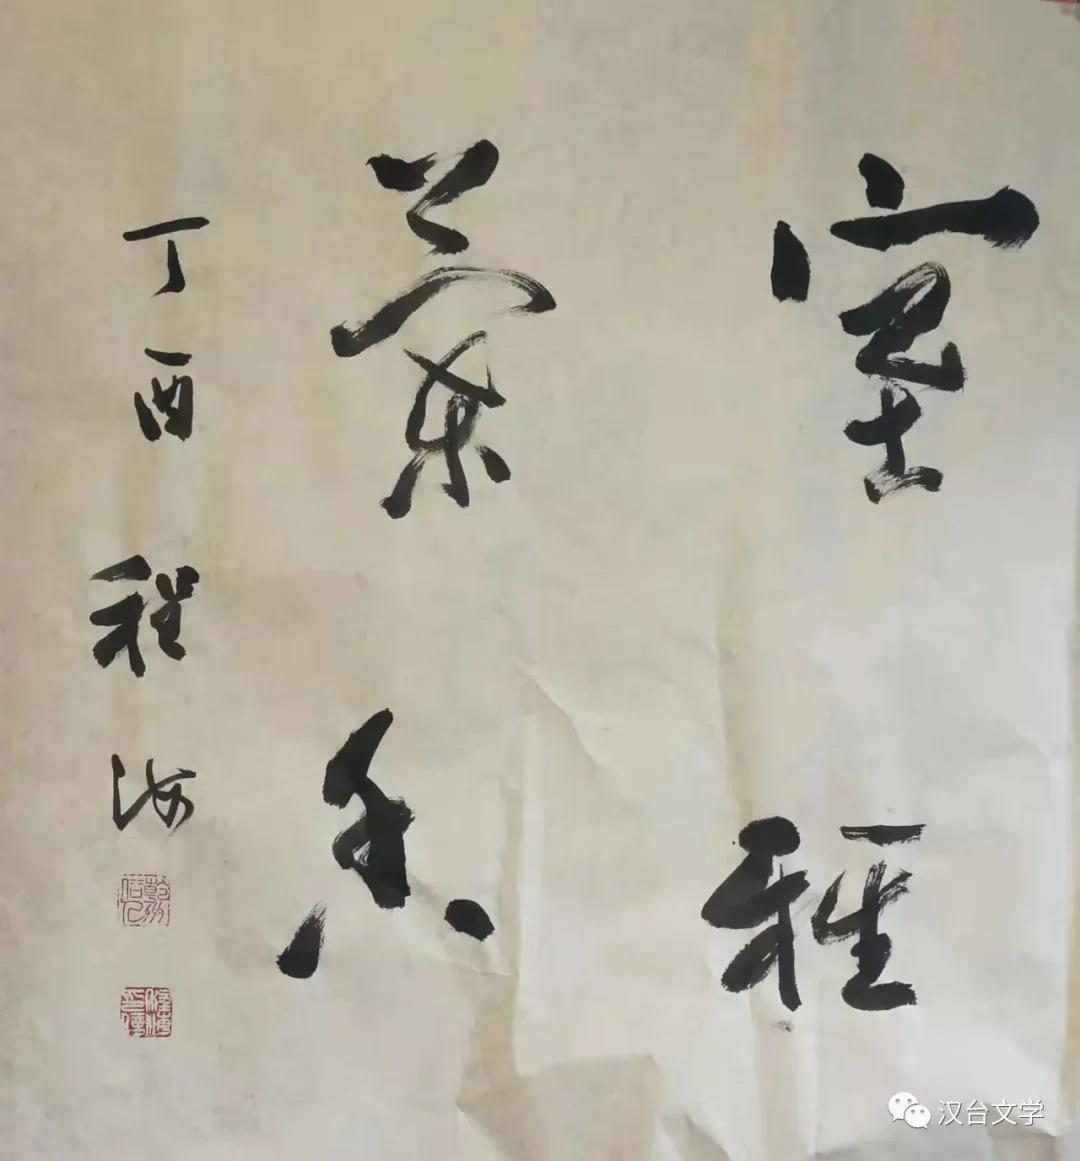 室雅
蘭香
丁酉 程海
汉台文学